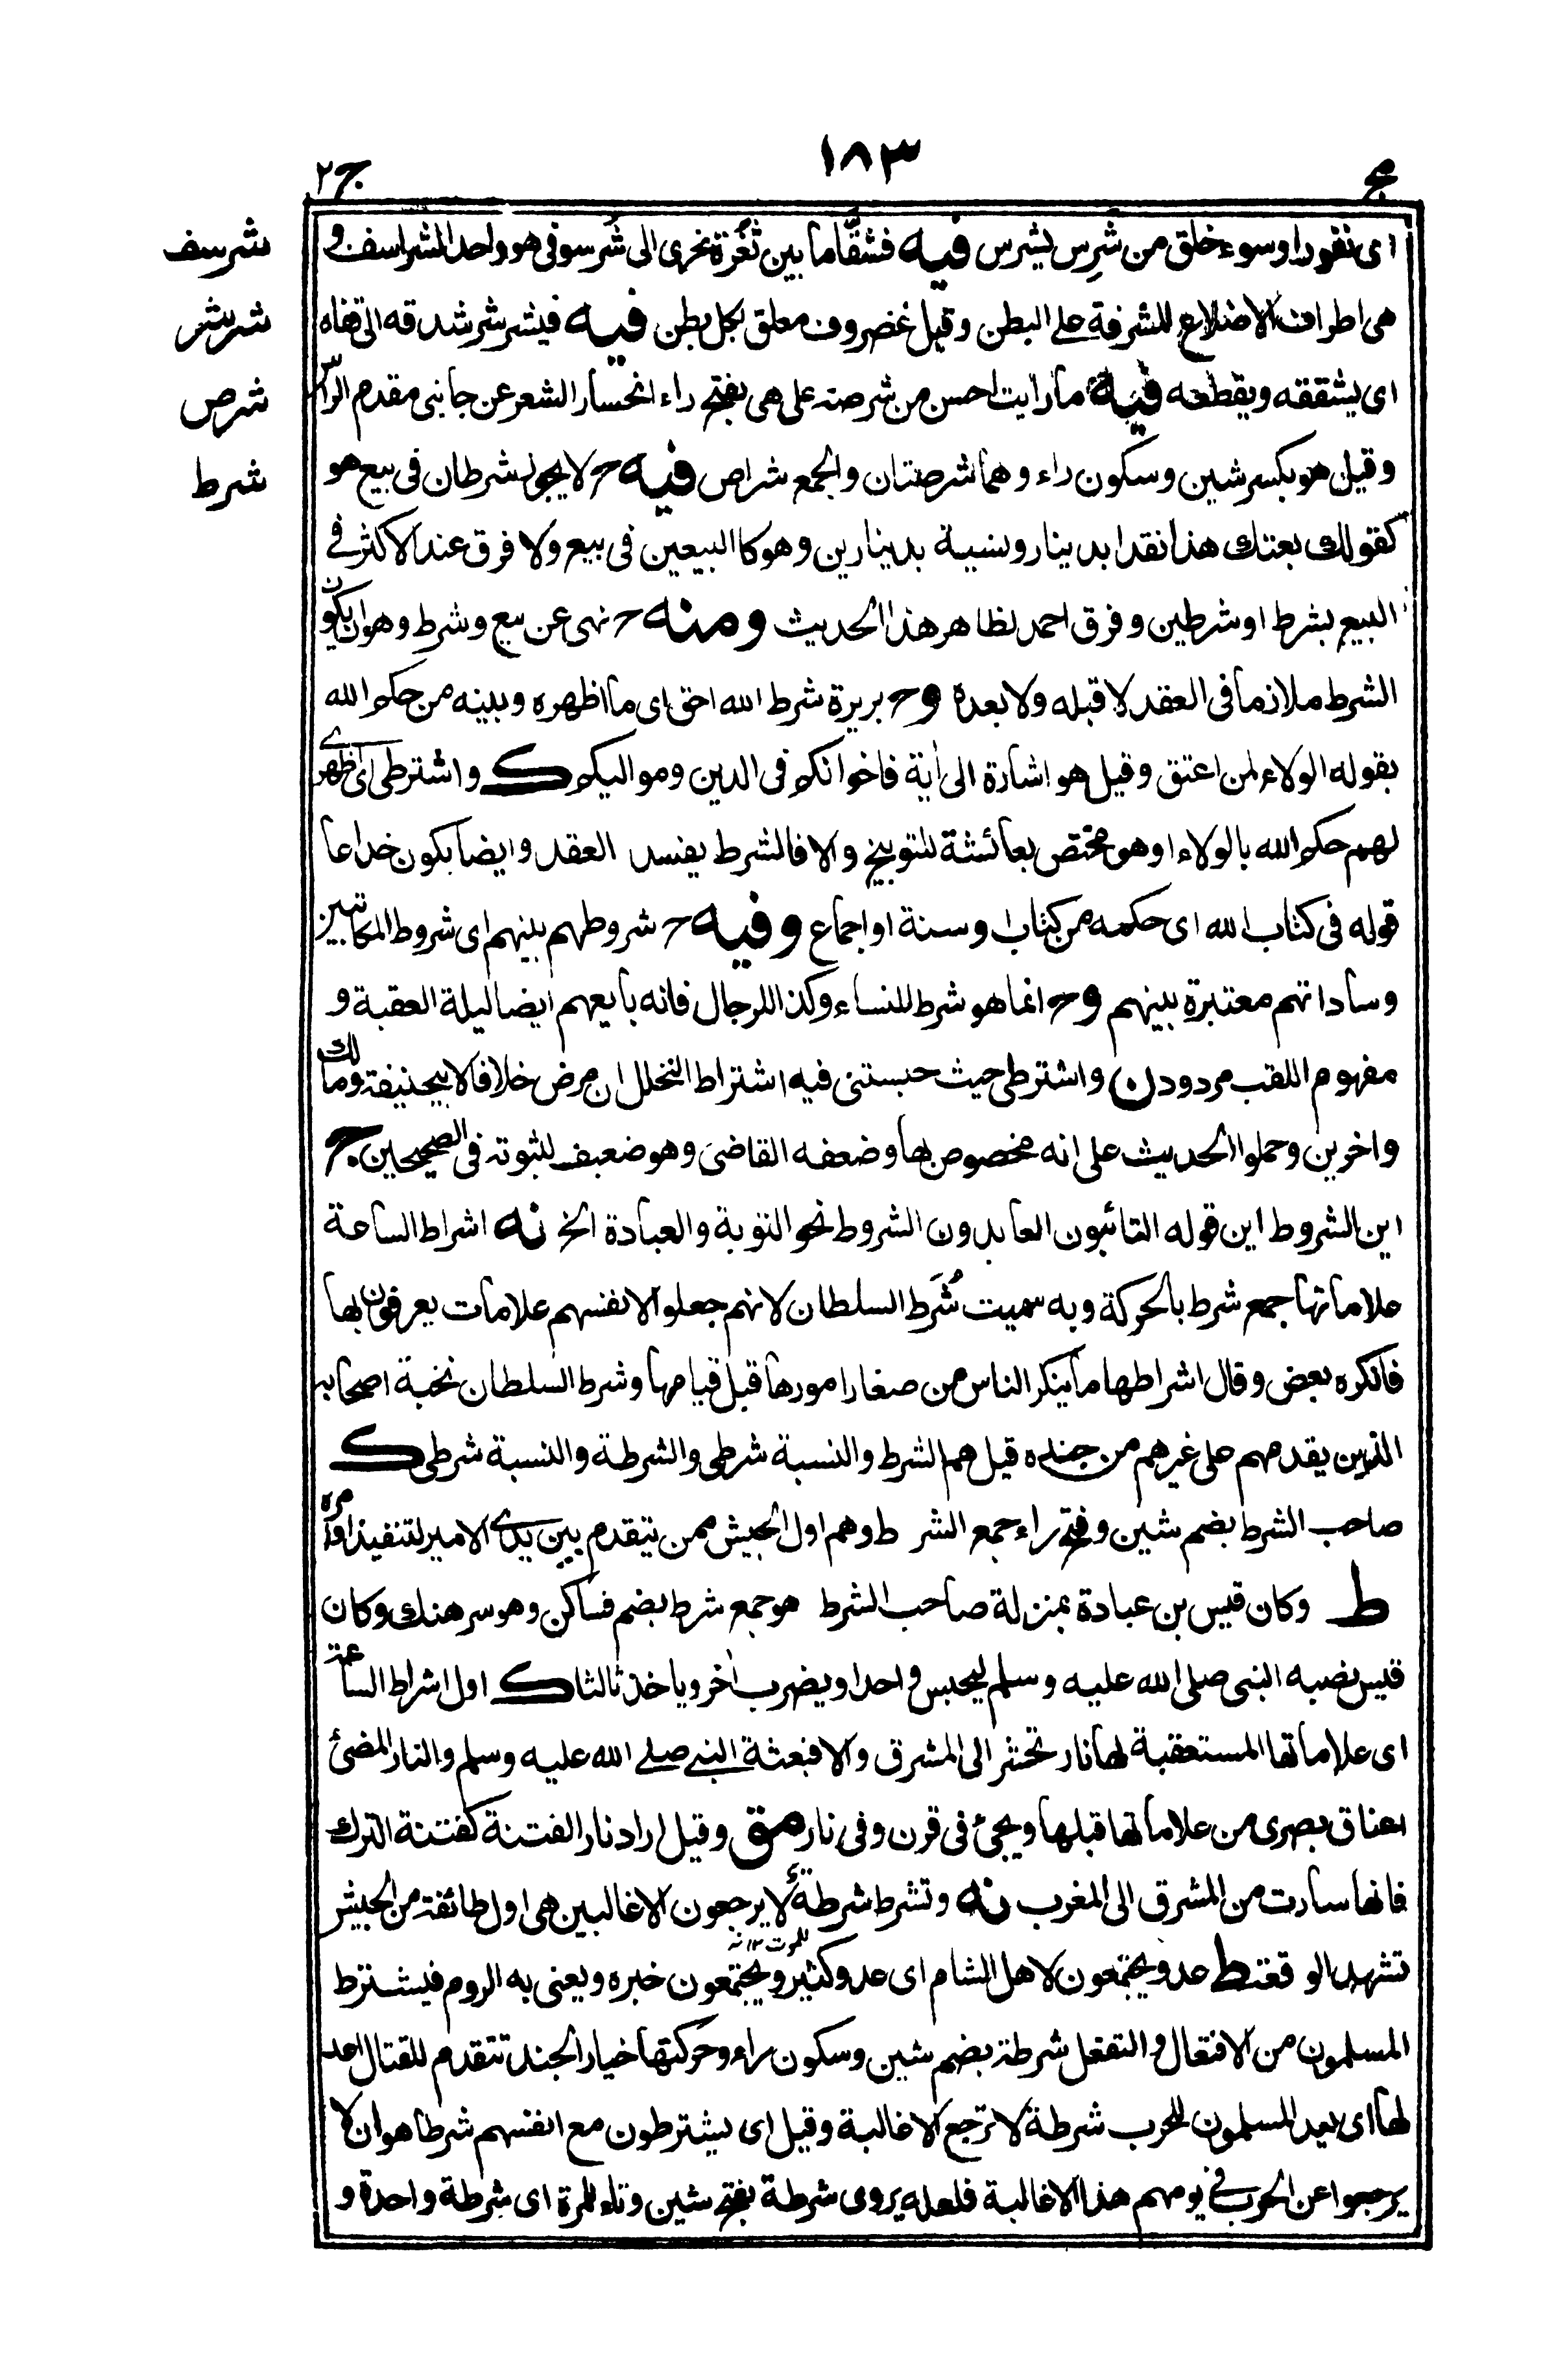 مج
١٨٣
ج٢
شرسف
شرشر
شرص
شرط
ای نفورا وسوء خلق من شَرِس یشرس فیه فشقّا ما بین ثُغرة نحری الی شُرسوفی هو واحد الشراسف و
هی اطراف الاضلاع المشرفة علی البطن وقیل غضروف معلق بکل بطن فیه فیشرشر شدقه الی قفاه
ای یشققه ویقطعه فیه ما رایت احسن من شرصة علی هی بفتح راء انحسار الشعر عن جانبی مقدم الراس
وقیل هو بکسر شین وسکون راء وهما شرصتان والجمع شراص فیه ح لا یجوز شرطان فی بیع هو
کقولك بعتك هذا نقدا بدینار ونسیة بدینارین وهو کالبیعین فی بیع ولا فرق عند الاکثر فی
البیع بشرط او شرطین وفرق احمد لظاهر هذا الحدیث ومنه ح نهی عن بیع وشرط وهو ان یکون
الشرط ملازما فی العقد لا قبله ولا بعده وح بریرة شرط الله احق ای ما اظهره وبینه من حکم الله
بقوله الولاء لمن اعتق وقیل هو اشارة الی اٰیة فاخوانکم فی الدین وموالیکم ك واشترطی ای اظهری
لهم حکم الله بالولاء او هو مختص بعائشة للتوبیخ والا فالشرط یفسد العقد وایضا یکون خداعا
قوله فی کتاب الله ای حکمه من کتاب او سنة او اجماع وفیه ح شروطهم بینهم ای شروط المکاتبین
وساداتهم معتبرة بینهم وح انما هو شرط للنساء وکذا للرجال فانه بایعهم ایضا لیلة العقبة و
مفهوم اللقب مردود ن واشترطی حیث حبستنی فیه اشتراط التحلل ان مرض خلافا لابیحنیفة ومالك
واخرین وحملوا الحدیث علی انه مخصوص بها وضعفه القاضی وهو ضعیف لثبوته فی الصحیحین ج
این الشروط این قوله التائبون العابدون الشروط نحو التوبة والعبادة الخ نه اشراط الساعة
علاماتها جمع شرط بالحرکة وبه سمیت شُرَط السلطان لانهم جعلوا لانفسهم علامات یعرفون بها
فانکره بعض وقال اشراطها ما ینکر الناس من صغار امورها قبل قیامها وشرط السلطان نخبة اصحابه
الذین یقدمهم علی غیرهم من جنده قیل هم الشرط والنسبة شرطی والشرطة والنسبة شرطی ك
صاحب الشرط بضم شین وفتح راء جمع الشرط وهم اول الجیش ممن یتقدم بین یدی الامیر لتنفیذ اوامره
ط وکان قیس بن عبادة بمنزلة صاحب الشرط هو جمع شرط بضم فساکن وهو سرهنك وکان
قیس نصبه النبی صلی الله علیه وسلم لیحبس واحدا ویضرب اٰخر ویاخذ ثالثا ك اول اشراط الساعة
ای علاماتها المستعقبة لها نار تحشر الی المشرق والا فبعثة النبی صلی الله علیه وسلم والنار المضئ
اعناق بصری من علاماتها قبلها ویجئ فی قرن وفی نار مق وقیل اراد نار الفتنة کفتنة الترك
فانها سارت من المشرق الی المغرب نه وتشرط شرطة لا یرجعون الا غالبین هی اول طائفة من الجیش
للموت ١٢ نه
تشهد الوقعة ط عدو یجتمعون لاهل الشام ای عدو کثیر ویجتمعون خبره ویعنی به الروم فیشترط
المسلمون من الافتعال والتفعل شرطة بضم شین وسکون راء وحرکتها خیار الجند تتقدم للقتال اعد
لها ای یعد المسلمون للحرب شرطة لا ترجع الا غالبة وقیل ای یشترطون مع انفسهم شرطا هو ان لا
یرجعوا عن الحرب فی یومهم هذا الا غالبة فلعله یروی شرطة بفتح شین وتاء للمرة ای شرطة واحدة و